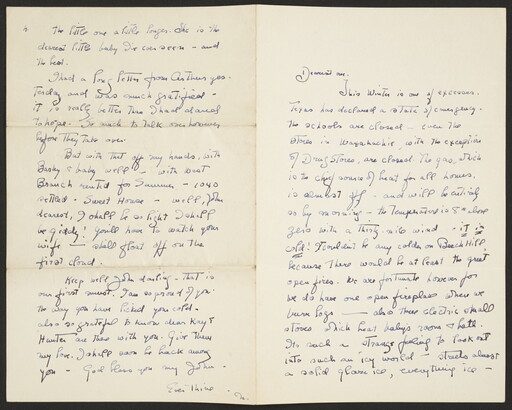 4
the little one a little longer. She is the
dearest little baby I've ever seen - and
the best.
I had a long letter from Arthur yes-
terday and was much gratified -
it is really better than I had dared
to hope. So much to talk over however
before they take over.
But with that off my hands, with
Bashy & baby well - with West
Branch rented for Summer - 1040
settled - Sweet House - well, John
dearest, I shall be so light I shall
be giddy! You'll have to watch your
wife - shell float off on the
first cloud.
Keep well John darling - that is
our first must. I am so proud of you
the way you have licked your cold -
also so grateful to know dear Kay &
Hunter are there with you. Give them
my love. I shall soon be back among
you - God bless you my John.
Ever thine
M.
Dearest one,
This Winter is one of excesses.
Texas has declared a state of emergency.
The schools are closed - even the
stores in Waxahachie, with the exception
of Drug Stores, are closed. The gas, which
is the chief source of heat for all homes,
is almost off - and will be entirely
so by morning - the temperature is 8° above
zero with a thirty-mile wind - it is
cold! It wouldn't be any colder on Beech Hill
because there would be at least the great
open fires. We are fortunate however for
we do have one open fireplace where we
burn logs - also three electric small
stoves which heat baby's room & bath.
Its such a strange feeling to look out
into such an icy world - streets almost
a solid glare ice, everything ice -